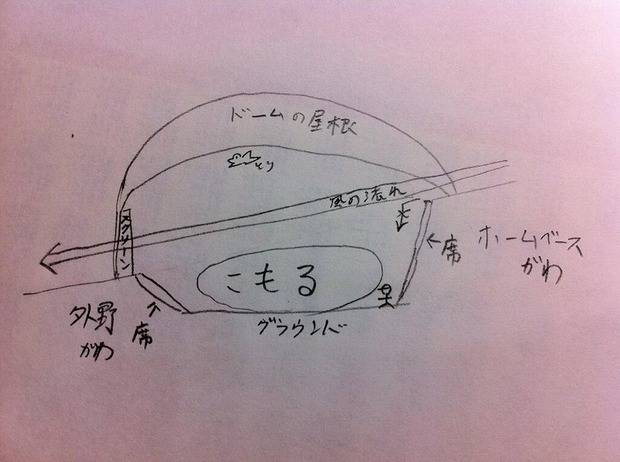 ドームの屋根
とり
風の流れ
スクリーン
席
ホームベース
がわ
こもる
外野
がわ
席
グラウンド